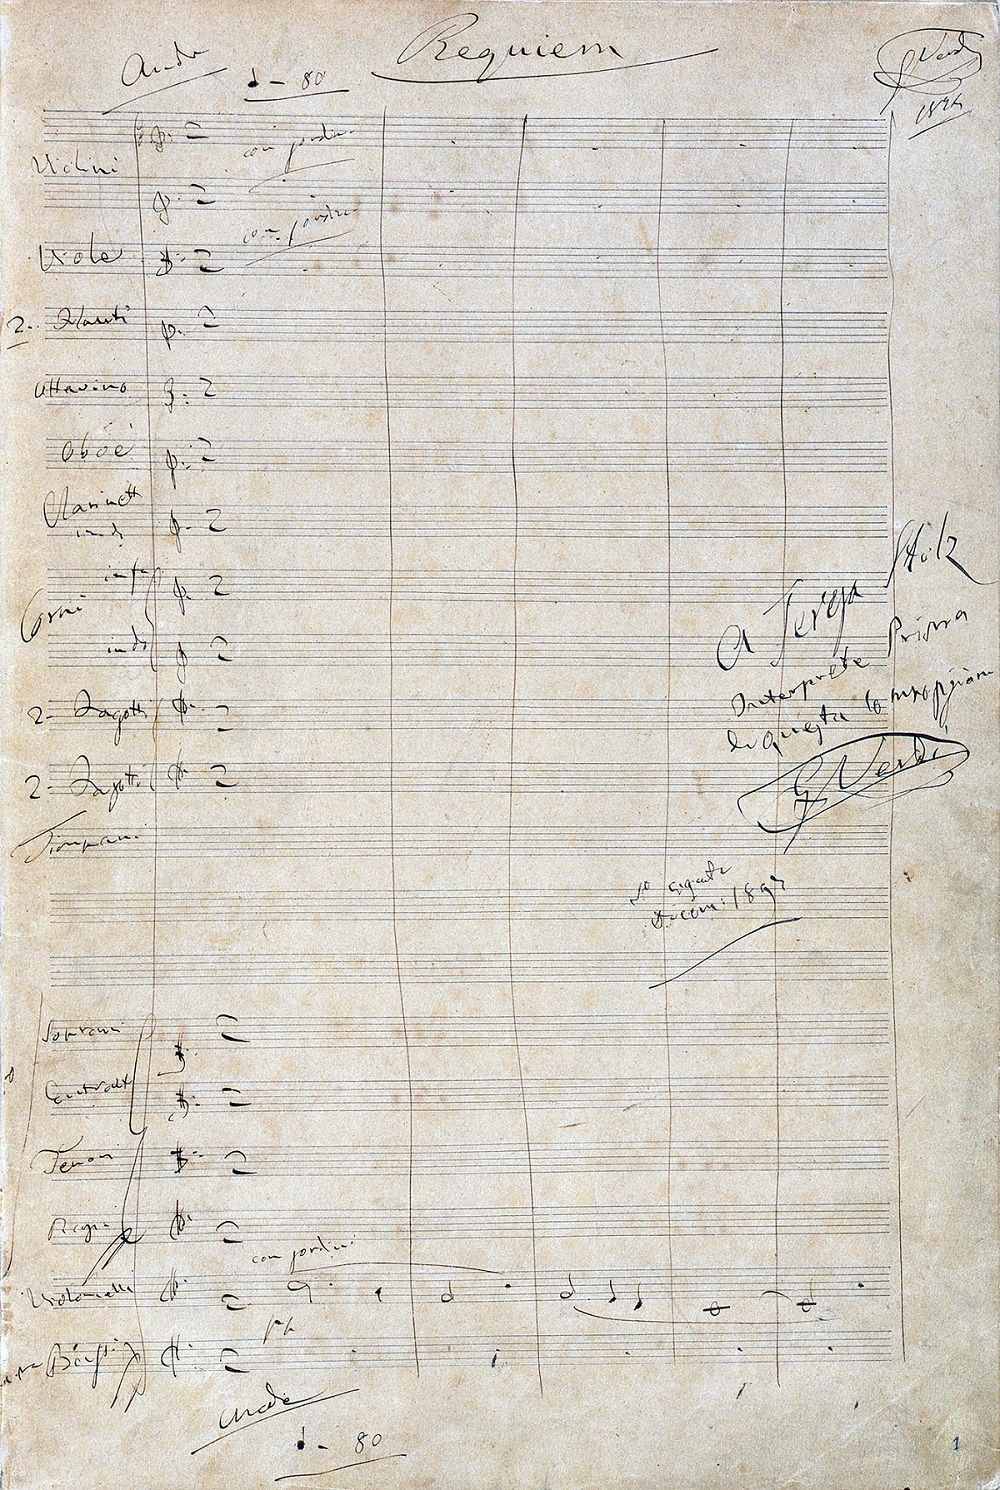 Requiem
Ande
♩ = 80
G Verdi
1874
Violini
con sordin.
con sordin.
Viole
2. Flauti
Ottavino
Oboè
Clarinetti
in do
Corni
in fa
in do
2- Fagotti
2- Fagotti
Timpani
A Teresa Stolz
Interprete Prima
di questa Composizione
G Verdi
St Agata
Dicem: 1892
Soprani
Contralti
Tenori
Bassi
con sordini
Violoncelli
Bassi
Ande
♩ = 80
1